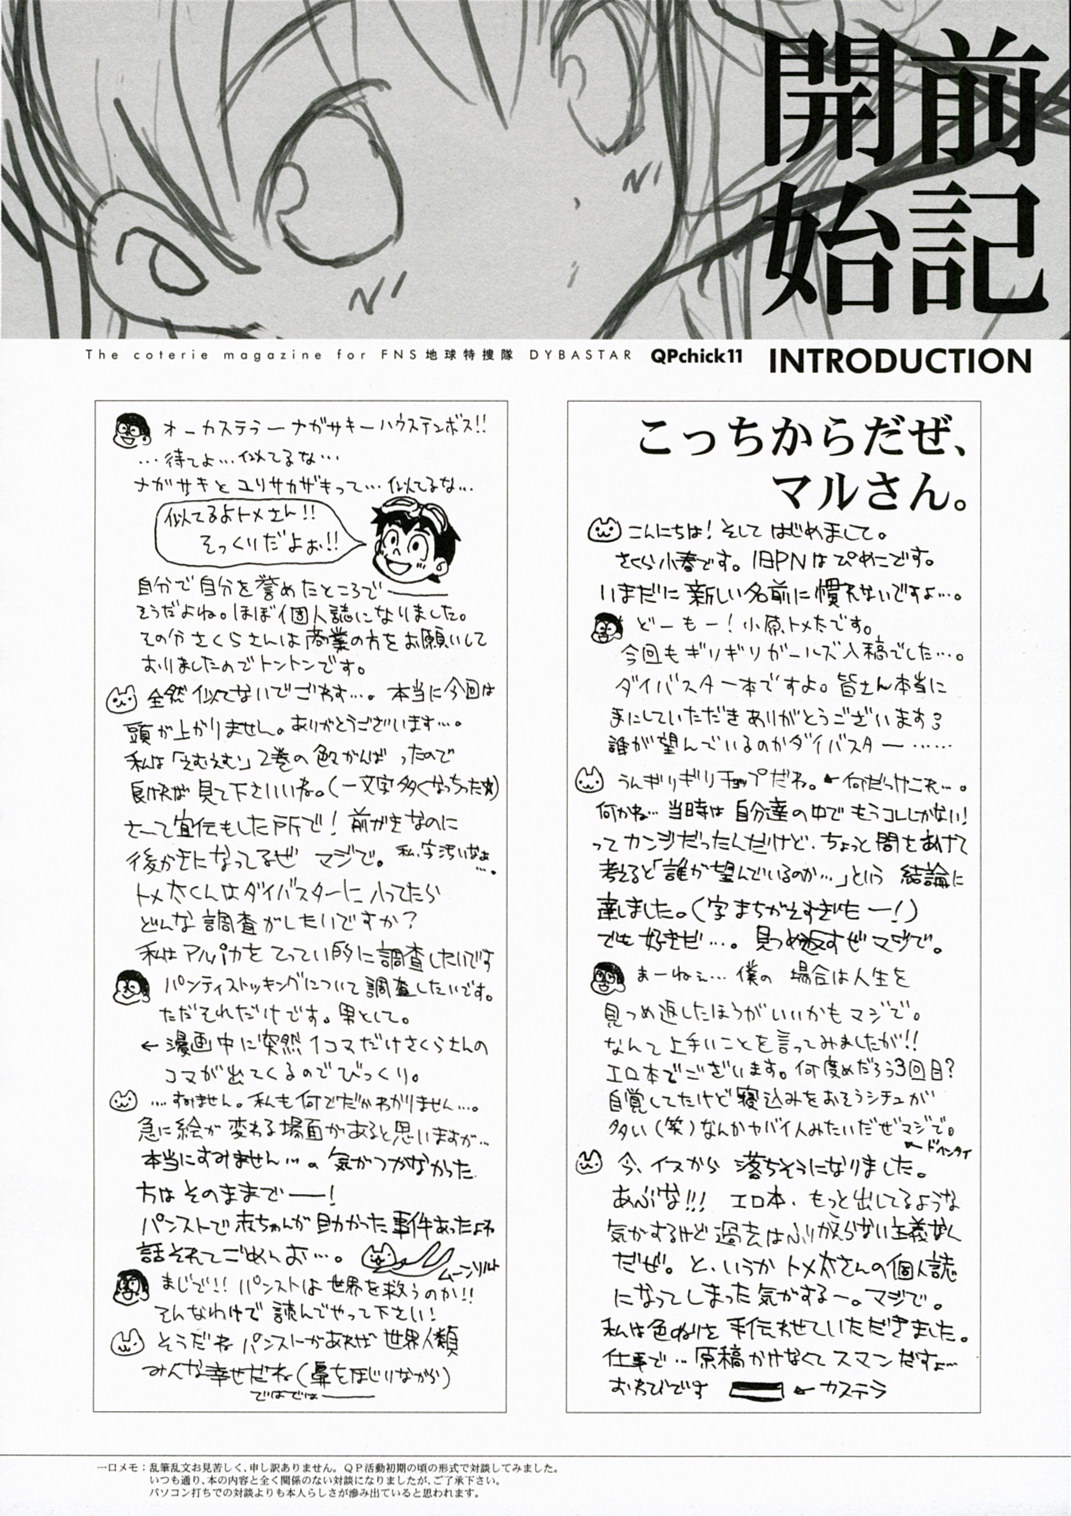 前記
開始
The coterie magazine for FNS地球特捜隊 DYBASTAR QPchick11 INTRODUCTION
こっちからだぜ、
マルさん。
こんにちは！そして はじめまして。
さくら小春です。旧PNはぴめこです。
いまだに新しい名前に慣れないですよ…。
どーもー！小原トメ太です。
今回もギリギリガールズ入稿でした…。
ダイバスター本ですよ。皆さん本当に
手にしていただきありがとうございます
誰が望んでいるのかダイバスター……
うんギリギリチョップだね。←何だっけこれ…。
何かね…当時は自分達の中でもうコレしかない！
ってカンジだったんだけど、ちょっと間をあけて
考えると「誰が望んでいるのか…」という 結論に
達しました。（字まちがえすぎたー！）
でも好きだ…。見つめ返すぜマジで。
まーねぇ…僕の 場合は人生を
見つめ返したほうがいいかもマジで。
なんて上手いことを言ってみましたが!!
エロ本でございます。何度めだろう3回目？
自覚してたけど寝込みをおそうシチュが
多い（笑）なんかヤバイ人みたいだぜマジで。
←ドヘンタイ
今、イスから 落ちそうになりました。
あぶな!!! エロ本、もっと出してるような
気がするけど過去はふりかえらない主義なん
だぜ。と、いうかトメ太さんの個人誌
になってしまった気がするー。マジで。
私は色ぬりを手伝わせていただきました。
仕事で…原稿かけなくてスマンだすよ…
おわびです ←カステラ
オーカステラーナガサキーハウステンボス!!
…待てよ…似てるな…
ナガサキとユリサカザキって…似てるな…
似てるよトメさん!!
そっくりだよぉ!!
自分で自分を誉めたところで――
そうだよね。ほぼ個人誌になりました。
その分さくらさんは商業の方をお願いして
おりましたのでトントンです。
全然似てないでごわす…。本当に今回は
頭が上がりません。ありがとうございます…。
私は「えむえむ」2巻の色々がんばったので
良ければ見て下さいいね。（一文字多くなっちった）
さーて宣伝もした所で！前がきなのに
後がきになってるぜ マジで。私、字汚いなぁ…。
トメ太くんはダイバスターに入ってたら
どんな調査がしたいですか？
私はアルパカをてってい的に調査したいです
パンティストッキングについて調査したいです。
ただそれだけです。男として。
←漫画中に突然1コマだけさくらさんの
コマが出てくるのでびっくり。
…すみません。私も何でだかわかりません…。
急に絵が変わる場面があると思いますが…
本当にすみません…。気がつかなかった
方はそのままで――！
パンストで赤ちゃんが助かった事件あったよね
話それてごめんお…。
ムーンソルト
まじで!! パンストは世界を救うのか!!
そんなわけで読んでやって下さい！
そうだね パンストがあれば世界人類
みんな幸せだね（鼻をほじりながら）
ではでは――
一口メモ：乱筆乱文お見苦しく、申し訳ありません。QP活動初期の頃の形式で対談してみました。
いつも通り、本の内容と全く関係のない対談になりましたが、ご了承下さい。
パソコン打ちでの対談よりも本人らしさが滲み出ていると思われます。